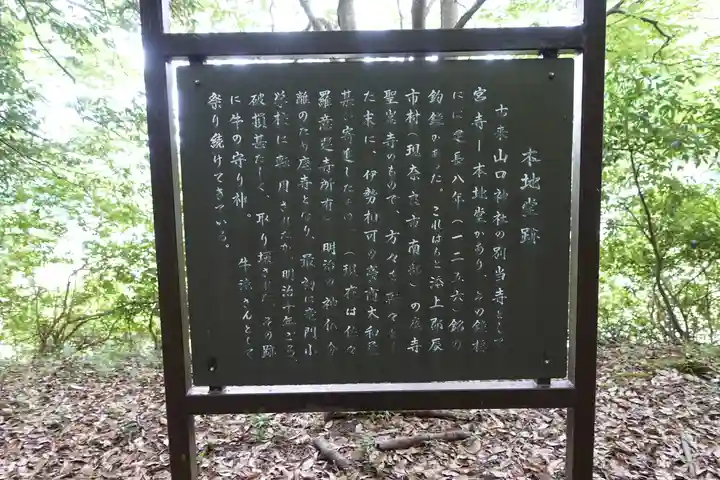 本地堂跡
古来山口神社の別当寺として
宮寺ー本地堂があり、その鐘楼
には建長八年（一二五六）銘の
釣鐘があった。これはもと添上郡辰
市村（現奈良市南部）の廃寺
聖 寺のもので、方々を転々とし
た末に、伊勢 可の 大和屋
甚 寄進したもの。（現在は佐々
羅 寺所有） 明治の神仏分
離のため廃寺となり、最初に 門小
学校に転用されたが、明治十年ごろ、
破損甚だしく、取り壊された。その跡
に牛の守り神。 牛滝さんとして
祭り続けてきている。